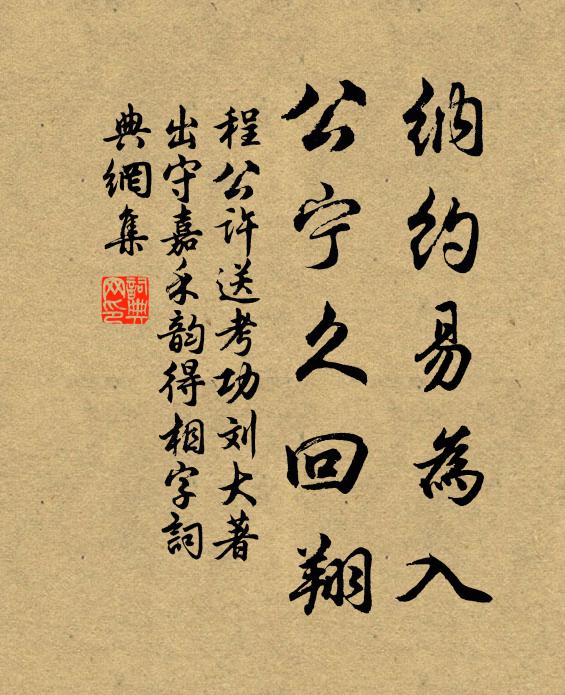 纳约易為入
公宁久回翔
程公许送考功刘大著
出守嘉禾韵得相字詞
典網集
詞典網印